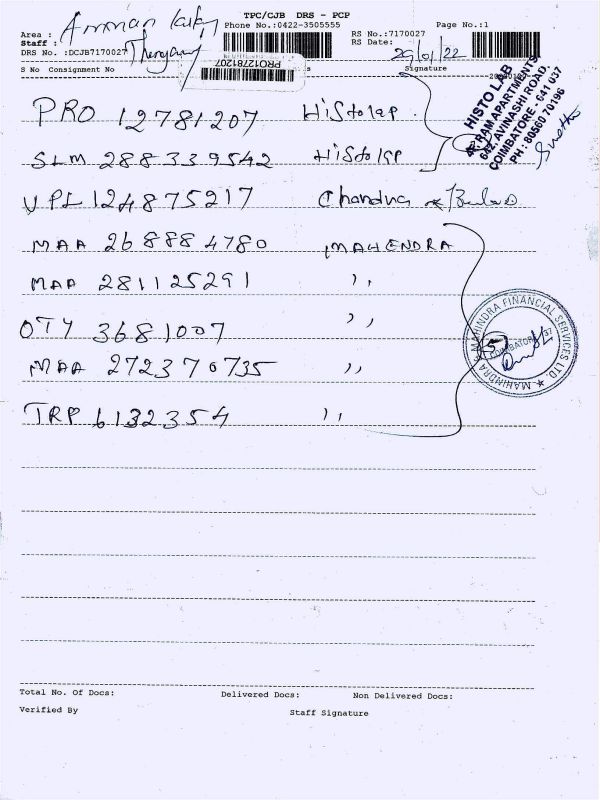 TPC/CJB DRS - PCP
Area : Amman
Phone No.:0422-3505555
RS No.:7170027
Page No.:1
Staff :
RS Date: 29/01/22
DRS No. :DCJB7170027
S No Consignment No
PRO12781207
Signature
HISTO LAB
4F, RAM APARTMENTS
642, AVINASHI ROAD,
COIMBATORE - 641 037
PH : 80560 70196
PRO 12781207 Histolap
SLM 288339542 Histolap
VPL 124875217 Chandra
MAA 268884780 MAHENDRA
MAA 281125291 ,,
OTY 3681007 ,,
MAA 272370735 ,,
TRP 6132354 ,,
MAHINDRA & MAHINDRA FINANCIAL SERVICES LTD.
COIMBATORE-37
5
Total No. Of Docs: Delivered Docs: Non Delivered Docs:
Verified By Staff Signature